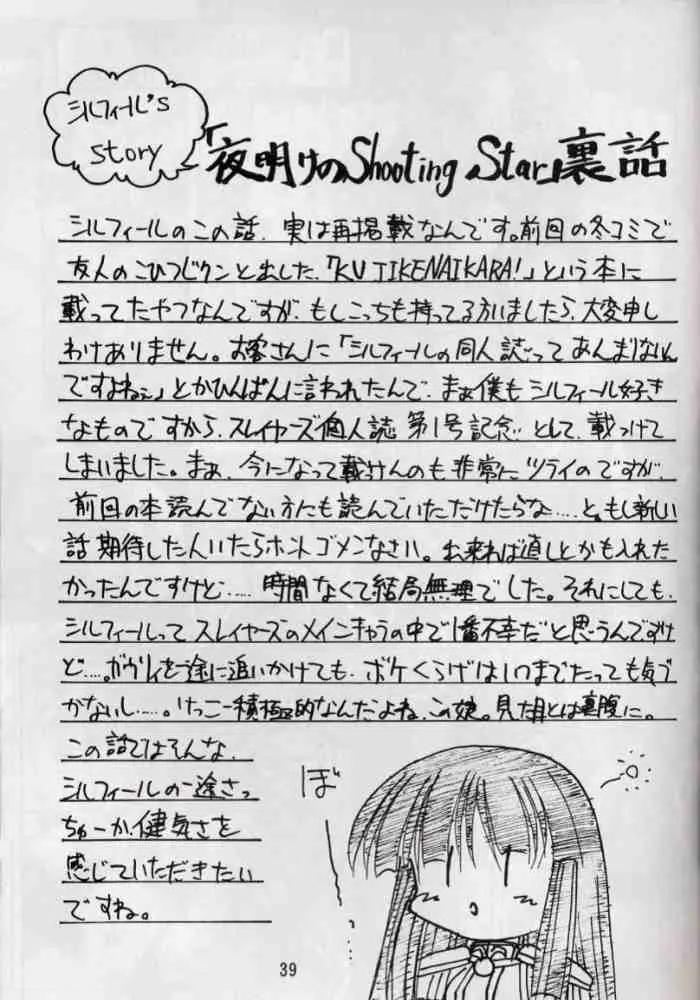 シルフィール's
story
「夜明けのShooting Star」裏話
シルフィールのこの話、実は再掲載なんです。前回の冬コミで
友人のこひつじクンと出した、「KUJIKENAIKARA!」という本に
載ってたやつなんですが、もしこっちも持ってる方いましたら、大変申し
わけありません。お客さんに「シルフィールの同人誌ってあんまりないん
ですよねぇ」とかひんぱんに言われたんで、まぁ僕もシルフィール好き
なものですから、スレイヤーズ個人誌 第1号記念 として、載っけて
しまいました。まぁ、今になって載せんのも非常にツライのですが、
前回の本読んでない方にも読んでいただけたらな……と。もし新しい
話期待した人いたらホントゴメンなさい。出来れば直しとかも入れた
かったんですけど……時間なくて結局無理でした。それにしても、
シルフィールってスレイヤーズのメインキャラの中で1番不幸だと思うんですけ
ど…。ガウリィを一途に追いかけても、ボケくらげはいつまでたっても気づ
かないし……。けっこー積極的なんだよね、この娘。見た目とは裏腹に。
この話ではそんな、
シルフィールの一途さっ
ちゅーか、健気さを
感じていただきたい
ですね。
ぼーー
39